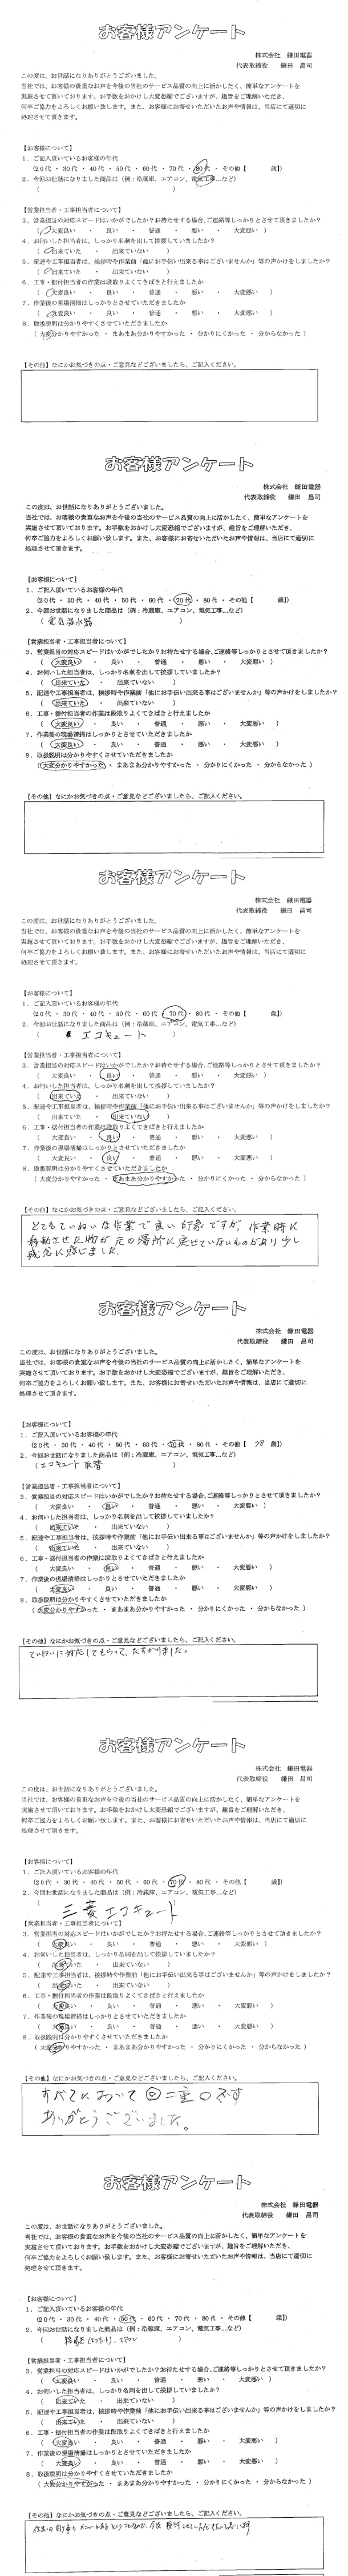 お客様アンケート
株式会社　鎌田電器
代表取締役　鎌田　昌司
この度は、お世話になりありがとうございました。
当社では、お客様の貴重なお声を今後の当社のサービス品質の向上に活かしたく、簡単なアンケートを
実施させて頂いております。お手数をおかけし大変恐縮でございますが、趣旨をご理解いただき、
何卒ご協力をよろしくお願い致します。また、お客様にお寄せいただいたお声や情報は、当店にて適切に
処理させて頂きます。
【お客様について】
1．ご記入頂いているお客様の年代
（20代 ・ 30代 ・ 40代 ・ 50代 ・ 60代 ・ 70代 ・ 80代 ・ その他【　　歳】）
2．今回お世話になりました商品は（例：冷蔵庫、エアコン、電気工事…など）
（　　　　）
【営業担当者・工事担当者について】
3．営業担当の対応スピードはいかがでしたか？お待たせする場合、ご連絡等しっかりとさせて頂きましたか？
（ 大変良い ・ 良い ・ 普通 ・ 悪い ・ 大変悪い ）
4．お伺いした担当者は、しっかり名刺を出して挨拶していましたか？
（ 出来ていた ・ 出来ていない ）
5．配達や工事担当者は、挨拶時や作業前「他にお手伝い出来る事はございませんか」等の声かけをしましたか？
（ 出来ていた ・ 出来ていない ）
6．工事・据付担当者の作業は段取りよくてきぱきと行えましたか
（ 大変良い ・ 良い ・ 普通 ・ 悪い ・ 大変悪い ）
7．作業後の現場清掃はしっかりとさせていただきましたか
（ 大変良い ・ 良い ・ 普通 ・ 悪い ・ 大変悪い ）
8．取扱説明は分かりやすくさせていただきましたか
（ 大変分かりやすかった ・ まあまあ分かりやすかった ・ 分かりにくかった ・ 分からなかった ）
【その他】なにかお気づきの点・ご意見などございましたら、ご記入ください。
お客様アンケート
株式会社　鎌田電器
代表取締役　鎌田　昌司
この度は、お世話になりありがとうございました。
当社では、お客様の貴重なお声を今後の当社のサービス品質の向上に活かしたく、簡単なアンケートを
実施させて頂いております。お手数をおかけし大変恐縮でございますが、趣旨をご理解いただき、
何卒ご協力をよろしくお願い致します。また、お客様にお寄せいただいたお声や情報は、当店にて適切に
処理させて頂きます。
【お客様について】
1．ご記入頂いているお客様の年代
（20代 ・ 30代 ・ 40代 ・ 50代 ・ 60代 ・ 70代 ・ 80代 ・ その他【　　歳】）
2．今回お世話になりました商品は（例：冷蔵庫、エアコン、電気工事…など）
（ 電気温水器 ）
【営業担当者・工事担当者について】
3．営業担当の対応スピードはいかがでしたか？お待たせする場合、ご連絡等しっかりとさせて頂きましたか？
（ 大変良い ・ 良い ・ 普通 ・ 悪い ・ 大変悪い ）
4．お伺いした担当者は、しっかり名刺を出して挨拶していましたか？
（ 出来ていた ・ 出来ていない ）
5．配達や工事担当者は、挨拶時や作業前「他にお手伝い出来る事はございませんか」等の声かけをしましたか？
（ 出来ていた ・ 出来ていない ）
6．工事・据付担当者の作業は段取りよくてきぱきと行えましたか
（ 大変良い ・ 良い ・ 普通 ・ 悪い ・ 大変悪い ）
7．作業後の現場清掃はしっかりとさせていただきましたか
（ 大変良い ・ 良い ・ 普通 ・ 悪い ・ 大変悪い ）
8．取扱説明は分かりやすくさせていただきましたか
（ 大変分かりやすかった ・ まあまあ分かりやすかった ・ 分かりにくかった ・ 分からなかった ）
【その他】なにかお気づきの点・ご意見などございましたら、ご記入ください。
お客様アンケート
株式会社　鎌田電器
代表取締役　鎌田　昌司
この度は、お世話になりありがとうございました。
当社では、お客様の貴重なお声を今後の当社のサービス品質の向上に活かしたく、簡単なアンケートを
実施させて頂いております。お手数をおかけし大変恐縮でございますが、趣旨をご理解いただき、
何卒ご協力をよろしくお願い致します。また、お客様にお寄せいただいたお声や情報は、当店にて適切に
処理させて頂きます。
【お客様について】
1．ご記入頂いているお客様の年代
（20代 ・ 30代 ・ 40代 ・ 50代 ・ 60代 ・ 70代 ・ 80代 ・ その他【　　歳】）
2．今回お世話になりました商品は（例：冷蔵庫、エアコン、電気工事…など）
（ エコキュート ）
【営業担当者・工事担当者について】
3．営業担当の対応スピードはいかがでしたか？お待たせする場合、ご連絡等しっかりとさせて頂きましたか？
（ 大変良い ・ 良い ・ 普通 ・ 悪い ・ 大変悪い ）
4．お伺いした担当者は、しっかり名刺を出して挨拶していましたか？
（ 出来ていた ・ 出来ていない ）
5．配達や工事担当者は、挨拶時や作業前「他にお手伝い出来る事はございませんか」等の声かけをしましたか？
（ 出来ていた ・ 出来ていない ）
6．工事・据付担当者の作業は段取りよくてきぱきと行えましたか
（ 大変良い ・ 良い ・ 普通 ・ 悪い ・ 大変悪い ）
7．作業後の現場清掃はしっかりとさせていただきましたか
（ 大変良い ・ 良い ・ 普通 ・ 悪い ・ 大変悪い ）
8．取扱説明は分かりやすくさせていただきましたか
（ 大変分かりやすかった ・ まあまあ分かりやすかった ・ 分かりにくかった ・ 分からなかった ）
【その他】なにかお気づきの点・ご意見などございましたら、ご記入ください。
とてもていねいな作業で良い印象ですが、作業時に
移動させた物が元の場所に戻せていないものがあり少し
残念に感じました。
お客様アンケート
株式会社　鎌田電器
代表取締役　鎌田　昌司
この度は、お世話になりありがとうございました。
当社では、お客様の貴重なお声を今後の当社のサービス品質の向上に活かしたく、簡単なアンケートを
実施させて頂いております。お手数をおかけし大変恐縮でございますが、趣旨をご理解いただき、
何卒ご協力をよろしくお願い致します。また、お客様にお寄せいただいたお声や情報は、当店にて適切に
処理させて頂きます。
【お客様について】
1．ご記入頂いているお客様の年代
（20代 ・ 30代 ・ 40代 ・ 50代 ・ 60代 ・ 70代 ・ 80代 ・ その他【 78 歳】）
2．今回お世話になりました商品は（例：冷蔵庫、エアコン、電気工事…など）
（ エコキュート 取替 ）
【営業担当者・工事担当者について】
3．営業担当の対応スピードはいかがでしたか？お待たせする場合、ご連絡等しっかりとさせて頂きましたか？
（ 大変良い ・ 良い ・ 普通 ・ 悪い ・ 大変悪い ）
4．お伺いした担当者は、しっかり名刺を出して挨拶していましたか？
（ 出来ていた ・ 出来ていない ）
5．配達や工事担当者は、挨拶時や作業前「他にお手伝い出来る事はございませんか」等の声かけをしましたか？
（ 出来ていた ・ 出来ていない ）
6．工事・据付担当者の作業は段取りよくてきぱきと行えましたか
（ 大変良い ・ 良い ・ 普通 ・ 悪い ・ 大変悪い ）
7．作業後の現場清掃はしっかりとさせていただきましたか
（ 大変良い ・ 良い ・ 普通 ・ 悪い ・ 大変悪い ）
8．取扱説明は分かりやすくさせていただきましたか
（ 大変分かりやすかった ・ まあまあ分かりやすかった ・ 分かりにくかった ・ 分からなかった ）
【その他】なにかお気づきの点・ご意見などございましたら、ご記入ください。
ていねいに対応してもらって、たすかりました。
お客様アンケート
株式会社　鎌田電器
代表取締役　鎌田　昌司
この度は、お世話になりありがとうございました。
当社では、お客様の貴重なお声を今後の当社のサービス品質の向上に活かしたく、簡単なアンケートを
実施させて頂いております。お手数をおかけし大変恐縮でございますが、趣旨をご理解いただき、
何卒ご協力をよろしくお願い致します。また、お客様にお寄せいただいたお声や情報は、当店にて適切に
処理させて頂きます。
【お客様について】
1．ご記入頂いているお客様の年代
（20代 ・ 30代 ・ 40代 ・ 50代 ・ 60代 ・ 70代 ・ 80代 ・ その他【　　歳】）
2．今回お世話になりました商品は（例：冷蔵庫、エアコン、電気工事…など）
（ 三菱エコキュート ）
【営業担当者・工事担当者について】
3．営業担当の対応スピードはいかがでしたか？お待たせする場合、ご連絡等しっかりとさせて頂きましたか？
（ 大変良い ・ 良い ・ 普通 ・ 悪い ・ 大変悪い ）
4．お伺いした担当者は、しっかり名刺を出して挨拶していましたか？
（ 出来ていた ・ 出来ていない ）
5．配達や工事担当者は、挨拶時や作業前「他にお手伝い出来る事はございませんか」等の声かけをしましたか？
（ 出来ていた ・ 出来ていない ）
6．工事・据付担当者の作業は段取りよくてきぱきと行えましたか
（ 大変良い ・ 良い ・ 普通 ・ 悪い ・ 大変悪い ）
7．作業後の現場清掃はしっかりとさせていただきましたか
（ 大変良い ・ 良い ・ 普通 ・ 悪い ・ 大変悪い ）
8．取扱説明は分かりやすくさせていただきましたか
（ 大変分かりやすかった ・ まあまあ分かりやすかった ・ 分かりにくかった ・ 分からなかった ）
【その他】なにかお気づきの点・ご意見などございましたら、ご記入ください。
すべてにおいて◎二重○です
ありがとうございました。
お客様アンケート
株式会社　鎌田電器
代表取締役　鎌田　昌司
この度は、お世話になりありがとうございました。
当社では、お客様の貴重なお声を今後の当社のサービス品質の向上に活かしたく、簡単なアンケートを
実施させて頂いております。お手数をおかけし大変恐縮でございますが、趣旨をご理解いただき、
何卒ご協力をよろしくお願い致します。また、お客様にお寄せいただいたお声や情報は、当店にて適切に
処理させて頂きます。
【お客様について】
1．ご記入頂いているお客様の年代
（20代 ・ 30代 ・ 40代 ・ 50代 ・ 60代 ・ 70代 ・ 80代 ・ その他【　　歳】）
2．今回お世話になりました商品は（例：冷蔵庫、エアコン、電気工事…など）
【営業担当者・工事担当者について】
3．営業担当の対応スピードはいかがでしたか？お待たせする場合、ご連絡等しっかりとさせて頂きましたか？
（ 大変良い ・ 良い ・ 普通 ・ 悪い ・ 大変悪い ）
4．お伺いした担当者は、しっかり名刺を出して挨拶していましたか？
（ 出来ていた ・ 出来ていない ）
5．配達や工事担当者は、挨拶時や作業前「他にお手伝い出来る事はございませんか」等の声かけをしましたか？
（ 出来ていた ・ 出来ていない ）
6．工事・据付担当者の作業は段取りよくてきぱきと行えましたか
（ 大変良い ・ 良い ・ 普通 ・ 悪い ・ 大変悪い ）
7．作業後の現場清掃はしっかりとさせていただきましたか
（ 大変良い ・ 良い ・ 普通 ・ 悪い ・ 大変悪い ）
8．取扱説明は分かりやすくさせていただきましたか
（ 大変分かりやすかった ・ まあまあ分かりやすかった ・ 分かりにくかった ・ 分からなかった ）
【その他】なにかお気づきの点・ご意見などございましたら、ご記入ください。